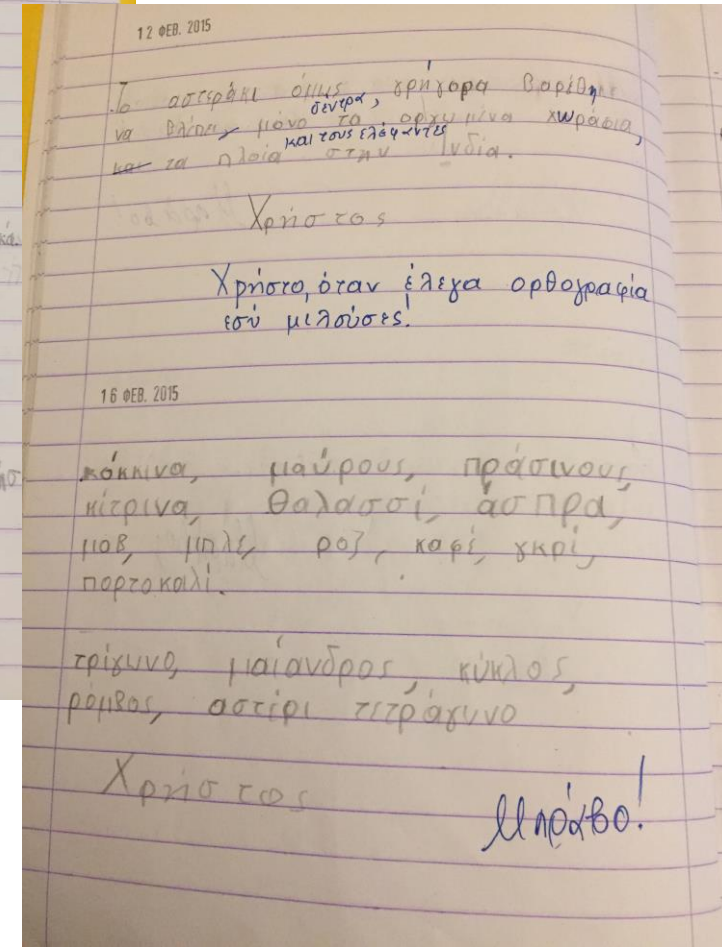 12 ΦΕΒ. 2015
Το αστεράκι όμως γρήγορα βαρέθηκε
δέντρα,
να βλέπει μόνο τα οργωμένα χωράφια,
και τους ελέφαντες
και τα πλοία στην Ινδία.
Χρήστος
Χρήστο, όταν έλεγα ορθογραφία
εσύ μιλούσες!
16 ΦΕΒ. 2015
κόκκινα, μαύρους, πράσινους,
κίτρινα, θαλασσί, άσπρα,
μοβ, μπλε, ροζ, καφέ, γκρί,
πορτοκαλί.
τρίγωνο, μαίανδρος, κύκλος,
ρόμβος, αστέρι τετράγωνο
Χρήστος
Μπράβο!